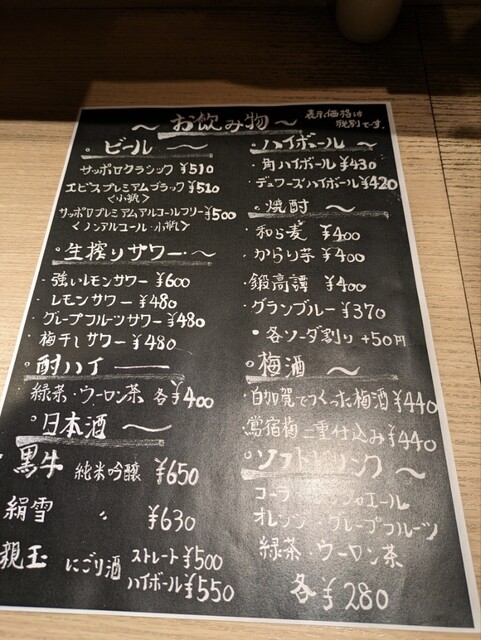 ～お飲み物～
表示価格は
税別です。
。ビール～
サッポロクラシック ¥510
エビスプレミアムブラック ¥510
<小瓶>
サッポロプレミアムアルコールフリー ¥500
<ノンアルコール・小瓶>
。生搾りサワー～
・強いレモンサワー ¥600
・レモンサワー ¥480
・グレープフルーツサワー ¥480
・梅干しサワー ¥480
。酎ハイ―
緑茶・ウーロン茶 各¥400
。日本酒～
・黒牛 純米吟醸 ¥650
絹雪 〃 ¥630
親玉 にごり酒 ストレート ¥500
ハイボール ¥550
。ハイボール～
・角ハイボール ¥430
・デュワーズハイボール ¥420
。焼酎～
・和ら麦 ¥400
・からり芋 ¥400
・鍛高譚 ¥400
・グランブルー ¥370
・各ソーダ割り +50円
。梅酒～
白加賀でつくった梅酒 ¥440
鶯宿梅二重仕込み ¥440
。ソフトドリンク～
コーラ
オレンジ・グレープフルーツ
緑茶・ウーロン茶
各¥280